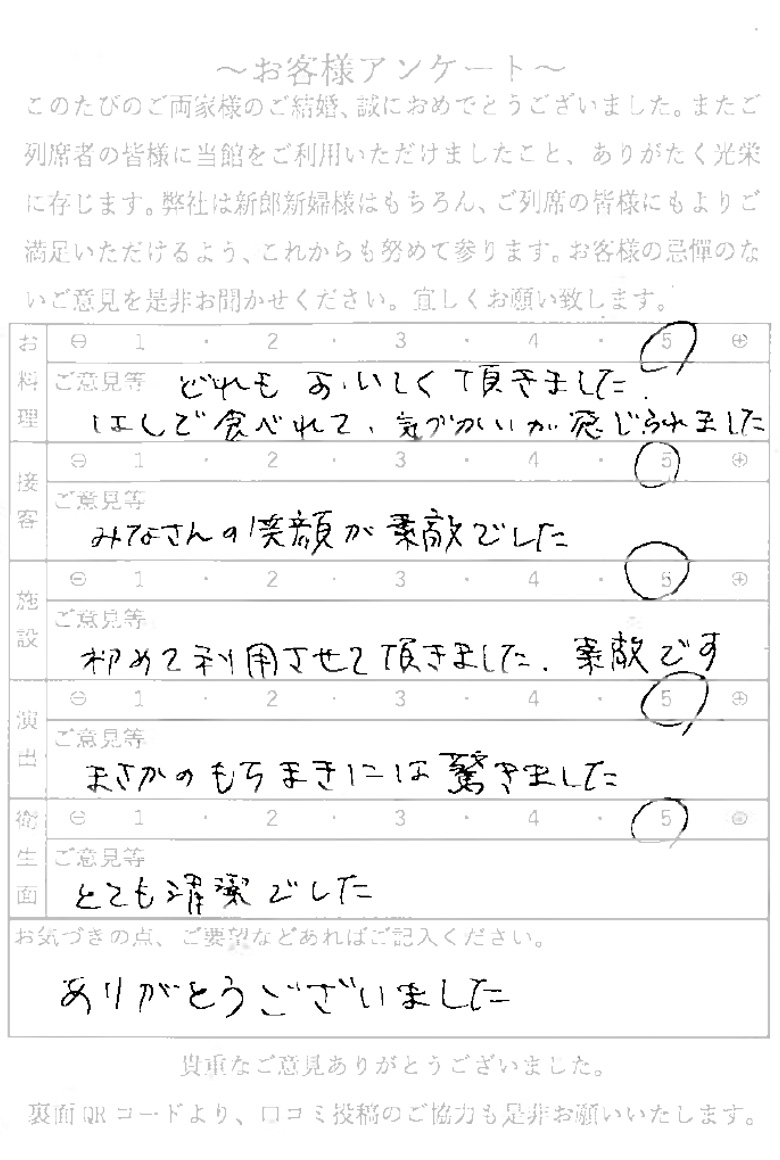 ～お客様アンケート～
このたびのご両家様のご結婚、誠におめでとうございました。またご
列席者の皆様に当館をご利用いただけましたこと、ありがたく光栄
に存じます。弊社は新郎新婦様はもちろん、ご列席の皆様にもよりご
満足いただけるよう、これからも努めて参ります。お客様の忌憚のな
いご意見を是非お聞かせください。宜しくお願い致します。
お料理
⊖ 1 ・ 2 ・ 3 ・ 4 ・ 5 ⊕
ご意見等 どれもおいしく頂きました。
はしで食べれて、気づかいが感じられました
接客
⊖ 1 ・ 2 ・ 3 ・ 4 ・ 5 ⊕
ご意見等
みなさんの笑顔が素敵でした
施設
⊖ 1 ・ 2 ・ 3 ・ 4 ・ 5 ⊕
ご意見等
初めて利用させて頂きました。素敵です
演出
⊖ 1 ・ 2 ・ 3 ・ 4 ・ 5 ⊕
ご意見等
まさかのもちまきには驚きました
衛生面
⊖ 1 ・ 2 ・ 3 ・ 4 ・ 5 ⊕
ご意見等
とても清潔でした
お気づきの点、ご要望などあればご記入ください。
ありがとうございました
貴重なご意見ありがとうございました。
裏面QRコードより、口コミ投稿のご協力も是非お願いいたします。